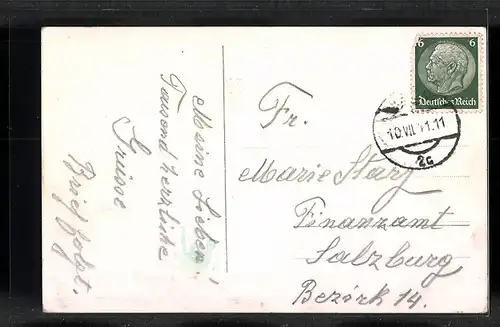 Meine Lieben!
Tausend herzliche
Grüsse
Brief folgt.
6 6
Deutsches Reich
10.VII. 41.11
2c
Fr.
Marie Starz
Finanzamt
Salzburg
Bezirk 14.